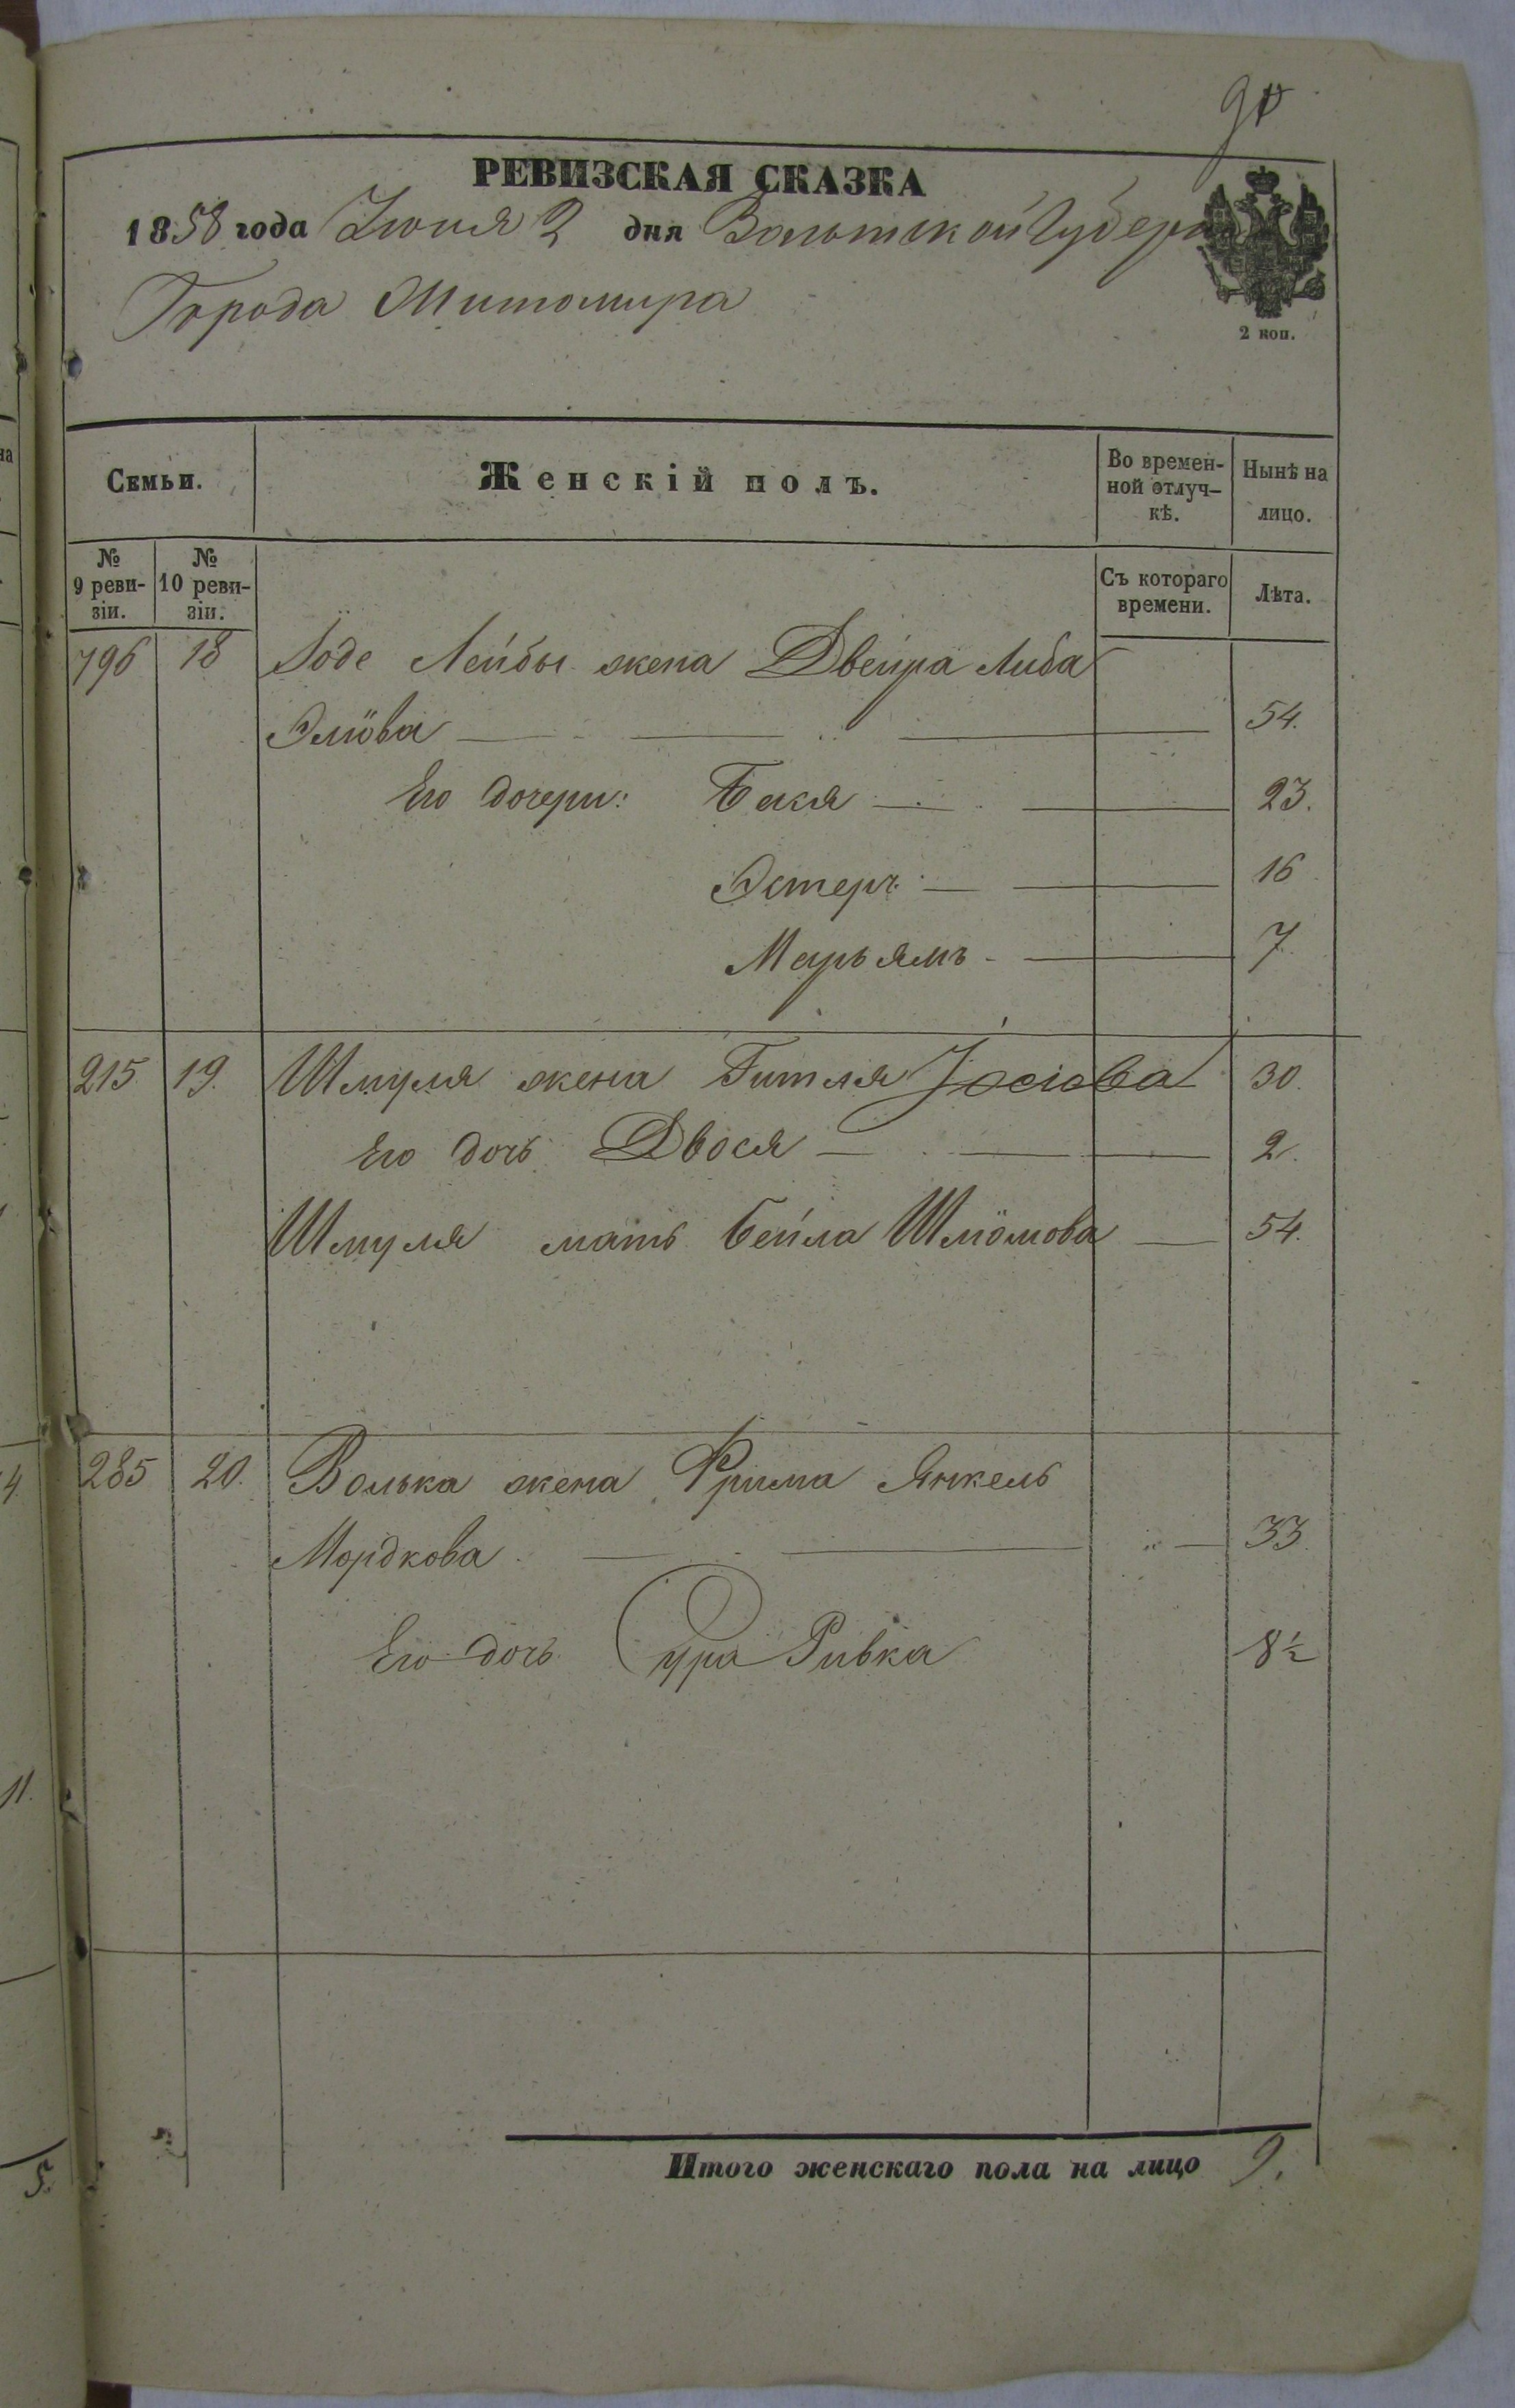 90
РЕВИЗСКАЯ СКАЗКА
1858 года Іюня 2 дня Волынской Губерн
Города Житомира
2 коп.
Семьи.
Женскій полъ.
Во времен-
ной отлуч-
кѣ.
Нынѣ на
лицо.
№
9 реви-
зіи.
№
10 реви-
зіи.
Съ котораго
времени.
Лѣта.
796 18 Лейбы жена Двейра Либа
Элiова 54.
Его дочери: Бася 23.
Эстеръ 16
Марьямъ 7.
215 19. Шмуля жена Гитля Іосіова 30.
Его дочь Двося 2.
Шмуля мать Бейла Шлiомова 54.
285 20. Волька жена Фрима Янкель
Мордкова 33.
Его дочь Сура Ривка 8½
Итого женскаго пола на лицо 9.